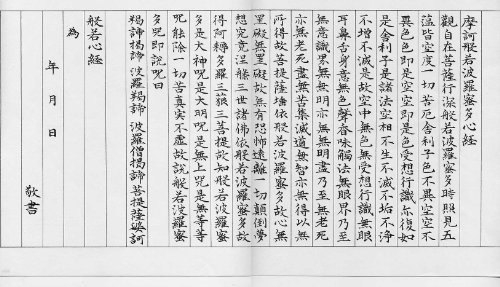 摩訶般若波羅蜜多心經
觀自在菩薩行深般若波羅蜜多時照見五
蘊皆空度一切苦厄舍利子色不異空空不
異色色即是空空即是色受想行識亦復如
是舍利子是諸法空相不生不滅不垢不淨
不增不減是故空中無色無受想行識無眼
耳鼻舌身意無色聲香味觸法無眼界乃至
無意識界無無明亦無無明盡乃至無老死
亦無老死盡無苦集滅道無智亦無得以無
所得故菩提薩埵依般若波羅蜜多故心無
罣礙無罣礙故無有恐怖遠離一切顛倒夢
想究竟涅槃三世諸佛依般若波羅蜜多故
得阿耨多羅三藐三菩提故知般若波羅蜜
多是大神呪是大明呪是無上呪是無等等
呪能除一切苦真實不虛故說般若波羅蜜
多呪即說呪曰
羯諦羯諦 波羅羯諦 波羅僧揭諦 菩提薩婆訶
般若心經
為
年 月 日
敬書